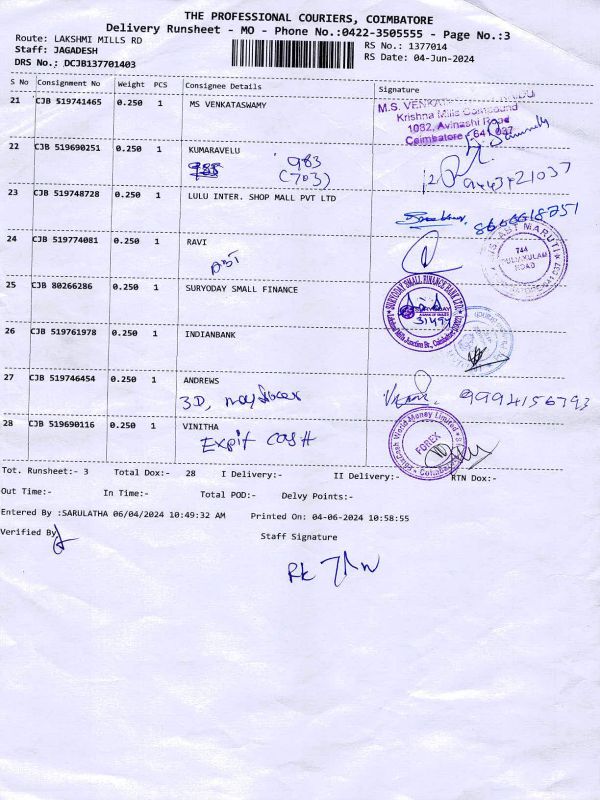 THE PROFESSIONAL COURIERS, COIMBATORE
Delivery Runsheet - MO - Phone No.:0422-3505555 - Page No.:3
Route: LAKSHMI MILLS RD
RS No.: 1377014
Staff: JAGADESH
RS Date: 04-Jun-2024
DRS No.: DCJB137701403
S No Consignment No Weight PCS Consignee Details Signature
21 CJB 519741465 0.250 1 MS VENKATASWAMY
Krishna Mills Compound
1082, Avinashi Road
Coimbatore - 641 037
22 CJB 519690251 0.250 1 KUMARAVELU
983
(703)
23 CJB 519748728 0.250 1 LULU INTER. SHOP MALL PVT LTD
24 CJB 519774081 0.250 1 RAVI
ABT
ABT MARUTI
744
PULIAKULAM
ROAD
25 CJB 80266286 0.250 1 SURYODAY SMALL FINANCE
SURYODAY SMALL FINANCE BANK LTD
SURYODAY
26 CJB 519761978 0.250 1 INDIANBANK
27 CJB 519746454 0.250 1 ANDREWS
3D,
9994156793
28 CJB 519690116 0.250 1 VINITHA
World Money Limited
FOREX
Tot. Runsheet:- 3 Total Dox:- 28 I Delivery:- II Delivery:- RTN Dox:-
Out Time:- In Time:- Total POD:- Delvy Points:-
Entered By :SARULATHA 06/04/2024 10:49:32 AM Printed On: 04-06-2024 10:58:55
Verified By
Staff Signature